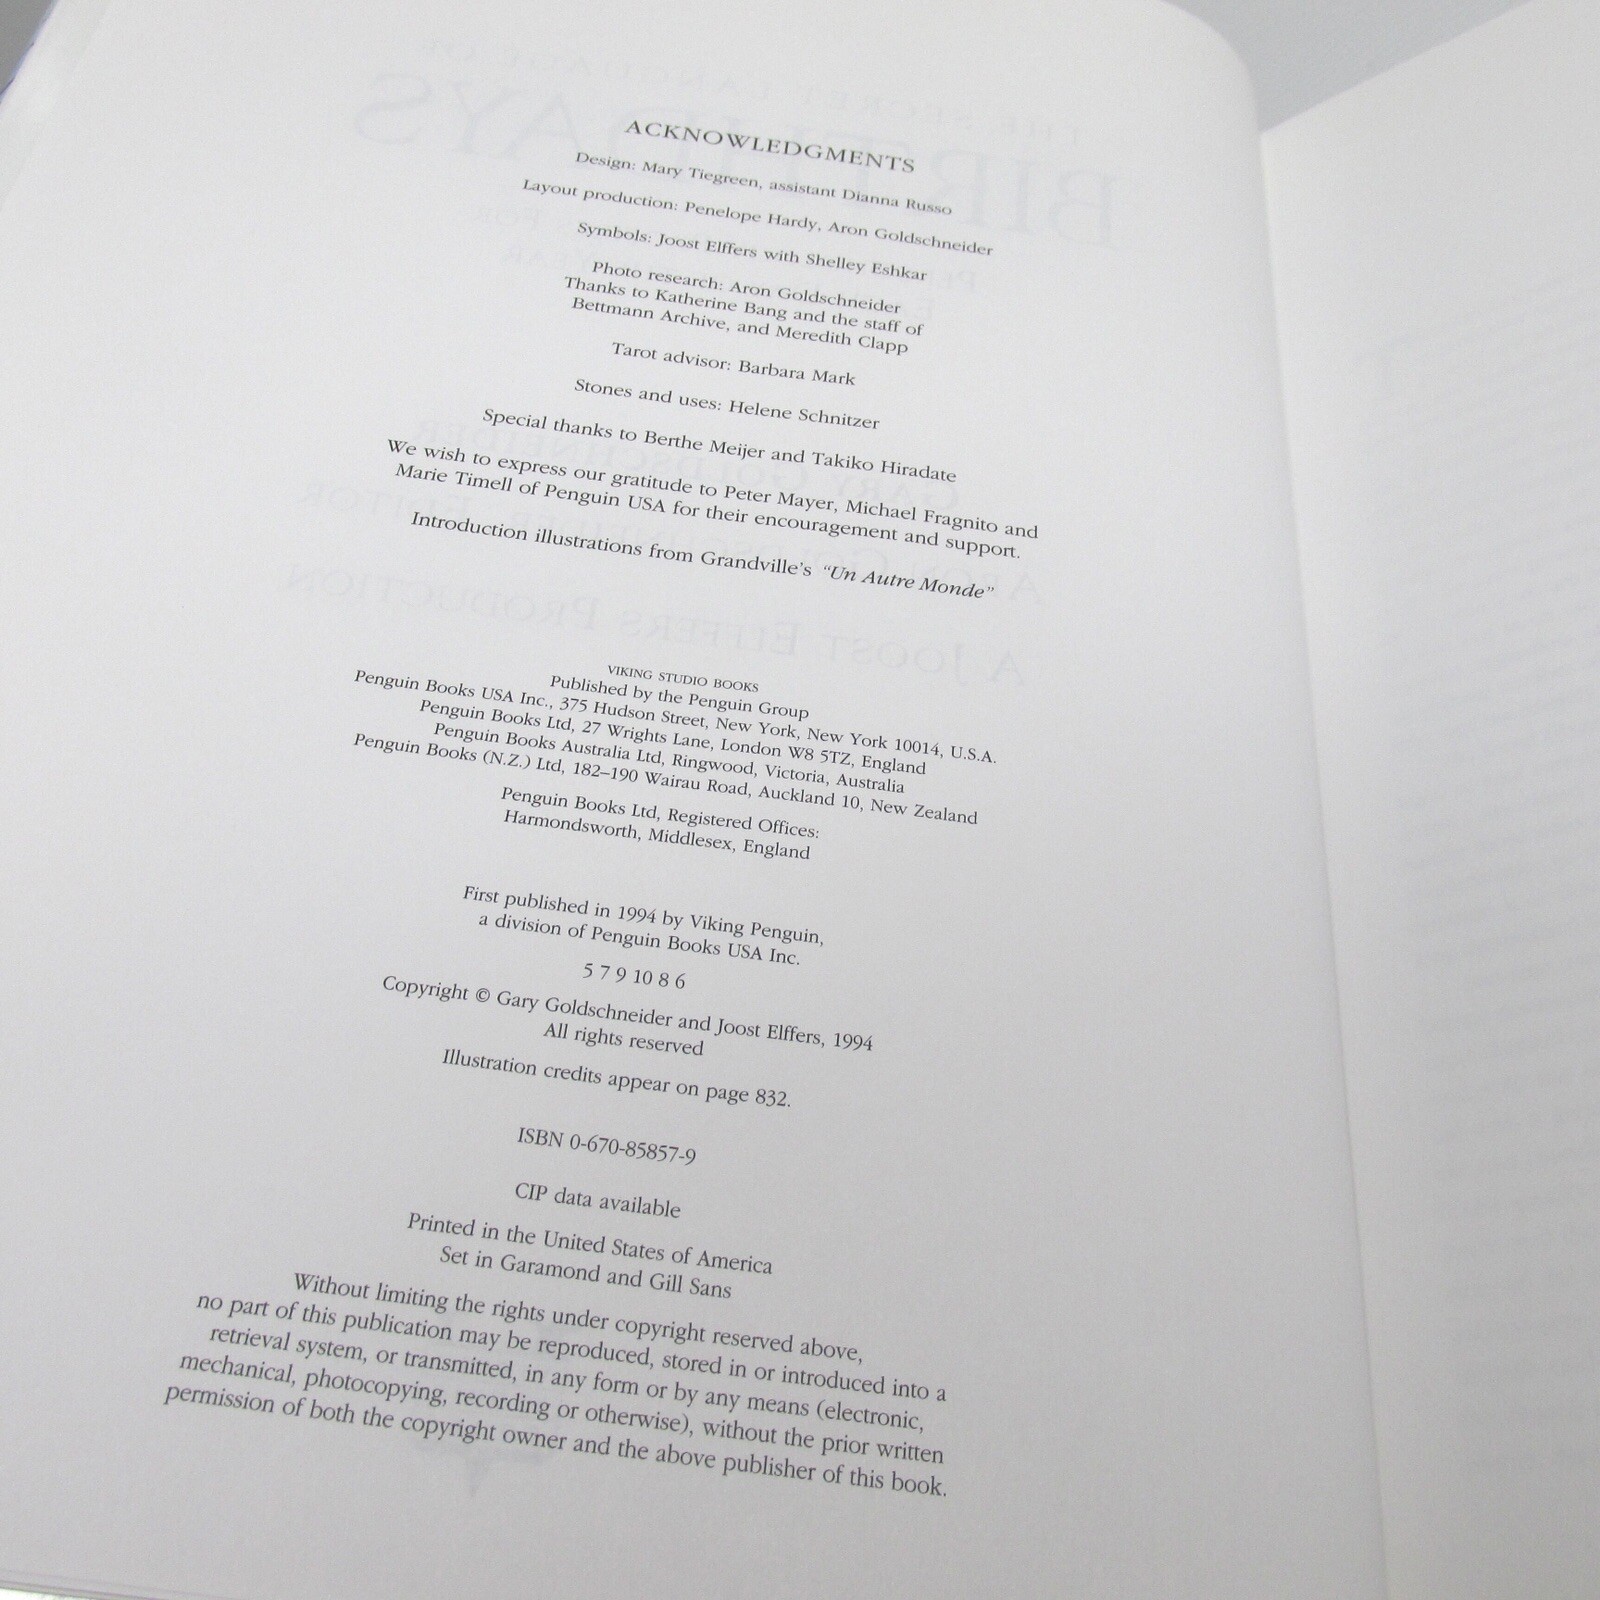 ACKNOWLEDGMENTS
Design: Mary Tiegreen, assistant Dianna Russo
Layout production: Penelope Hardy, Aron Goldschneider
Symbols: Joost Elffers with Shelley Eshkar
Photo research: Aron Goldschneider
Thanks to Katherine Bang and the staff of
Bettmann Archive, and Meredith Clapp
Tarot advisor: Barbara Mark
Stones and uses: Helene Schnitzer
Special thanks to Berthe Meijer and Takiko Hiradate
We wish to express our gratitude to Peter Mayer, Michael Fragnito and
Marie Timell of Penguin USA for their encouragement and support.
Introduction illustrations from Grandville's "Un Autre Monde"
VIKING STUDIO BOOKS
Published by the Penguin Group
Penguin Books USA Inc., 375 Hudson Street, New York, New York 10014, U.S.A.
Penguin Books Ltd, 27 Wrights Lane, London W8 5TZ, England
Penguin Books Australia Ltd, Ringwood, Victoria, Australia
Penguin Books (N.Z.) Ltd, 182–190 Wairau Road, Auckland 10, New Zealand
Penguin Books Ltd, Registered Offices:
Harmondsworth, Middlesex, England
First published in 1994 by Viking Penguin,
a division of Penguin Books USA Inc.
5 7 9 10 8 6
Copyright © Gary Goldschneider and Joost Elffers, 1994
All rights reserved
Illustration credits appear on page 832.
ISBN 0-670-85857-9
CIP data available
Printed in the United States of America
Set in Garamond and Gill Sans
Without limiting the rights under copyright reserved above,
no part of this publication may be reproduced, stored in or introduced into a
retrieval system, or transmitted, in any form or by any means (electronic,
mechanical, photocopying, recording or otherwise), without the prior written
permission of both the copyright owner and the above publisher of this book.